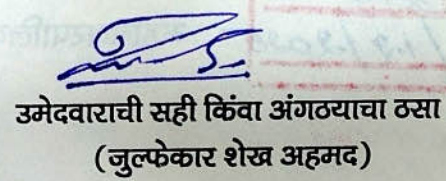 उमेदवाराची सही किंवा अंगठयाचा ठसा
(जुल्फेकार शेख अहमद)